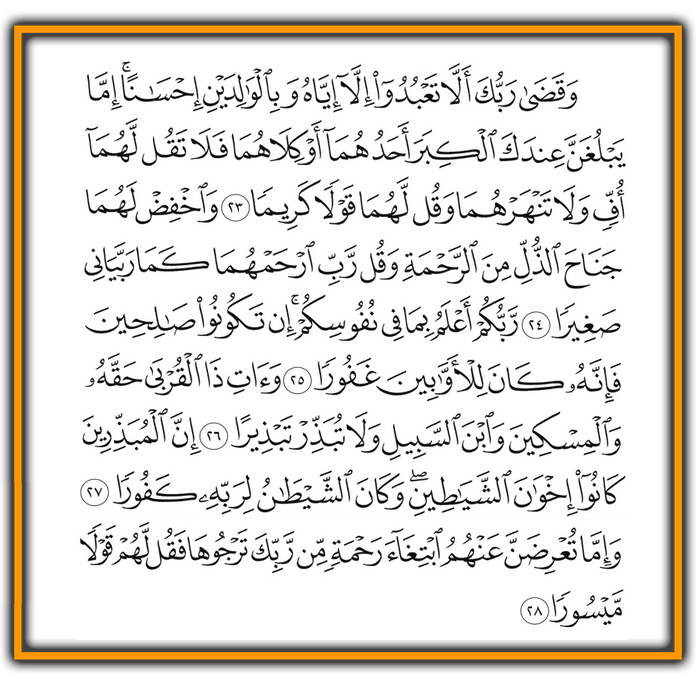 وَقَضَىٰ رَبُّكَ أَلَّا تَعْبُدُوٓا۟ إِلَّآ إِيَّاهُ وَبِٱلْوَٰلِدَيْنِ إِحْسَـٰنًا ۚ إِمَّا
يَبْلُغَنَّ عِندَكَ ٱلْكِبَرَ أَحَدُهُمَآ أَوْ كِلَاهُمَا فَلَا تَقُل لَّهُمَآ
أُفٍّ وَلَا تَنْهَرْهُمَا وَقُل لَّهُمَا قَوْلًا كَرِيمًا ٢٣ وَٱخْفِضْ لَهُمَا
جَنَاحَ ٱلذُّلِّ مِنَ ٱلرَّحْمَةِ وَقُل رَّبِّ ٱرْحَمْهُمَا كَمَا رَبَّيَانِى
صَغِيرًا ٢٤ رَّبُّكُمْ أَعْلَمُ بِمَا فِى نُفُوسِكُمْ ۚ إِن تَكُونُوا۟ صَـٰلِحِينَ
فَإِنَّهُۥ كَانَ لِلْأَوَّٰبِينَ غَفُورًا ٢٥ وَءَاتِ ذَا ٱلْقُرْبَىٰ حَقَّهُۥ
وَٱلْمِسْكِينَ وَٱبْنَ ٱلسَّبِيلِ وَلَا تُبَذِّرْ تَبْذِيرًا ٢٦ إِنَّ ٱلْمُبَذِّرِينَ
كَانُوٓا۟ إِخْوَٰنَ ٱلشَّيَـٰطِينِ ۖ وَكَانَ ٱلشَّيْطَـٰنُ لِرَبِّهِۦ كَفُورًا ٢٧
وَإِمَّا تُعْرِضَنَّ عَنْهُمُ ٱبْتِغَآءَ رَحْمَةٍ مِّن رَّبِّكَ تَرْجُوهَا فَقُل لَّهُمْ قَوْلًا
مَّيْسُورًا ٢٨